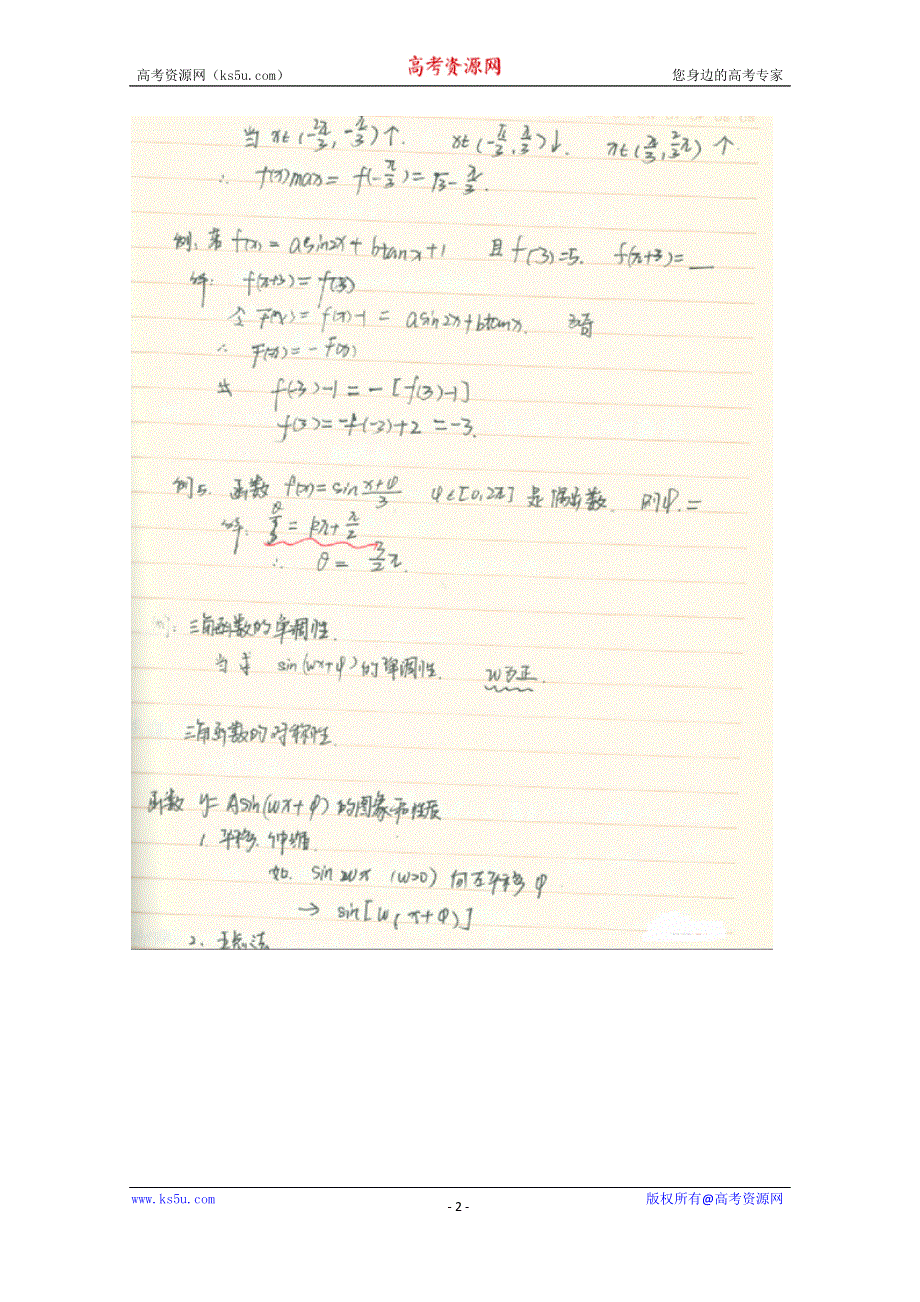 高考资源网（ks5u.com） 高考资源网 您身边的高考专家
当 x∈(-2π/3, -π/3)↑. x∈(-π/3, π/3)↓. x∈(π/3, 2/3π)↑
∴ f(x)max = f(-π/3) = √3 - π/3.
例, 若 f(x) = asin2x + btanx + 1 且 f(-3)=5. f(π+3)= __
解: f(π+3) = f(3)
令 F(x) = f(x)-1 = asin2x+btanx. 为奇
∴ F(-x) = -F(x)
f(-3)-1 = -[f(3)-1]
f(3) = -f(-3)+2 = -3.
例5. 函数 f(x)=sin (x+φ)/3 φ∈[0,2π] 是偶函数. 则φ.=
解: θ/3 = kπ+π/2
∴ θ = 3/2 π.
三角函数的单调性.
当求 sin(wx+φ)的单调性. w为正.
三角函数的对称性.
函数 y= Asin(wx+φ)的图象和性质
1. 平移、伸缩
如. sin wx (w>0) 向左平移 φ
→ sin[w(x+φ)]
2、五点法
www.ks5u.com - 2 - 版权所有@高考资源网